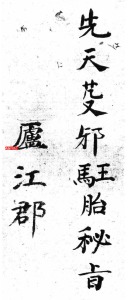 先天芟邪駐胎秘旨
廬江郡